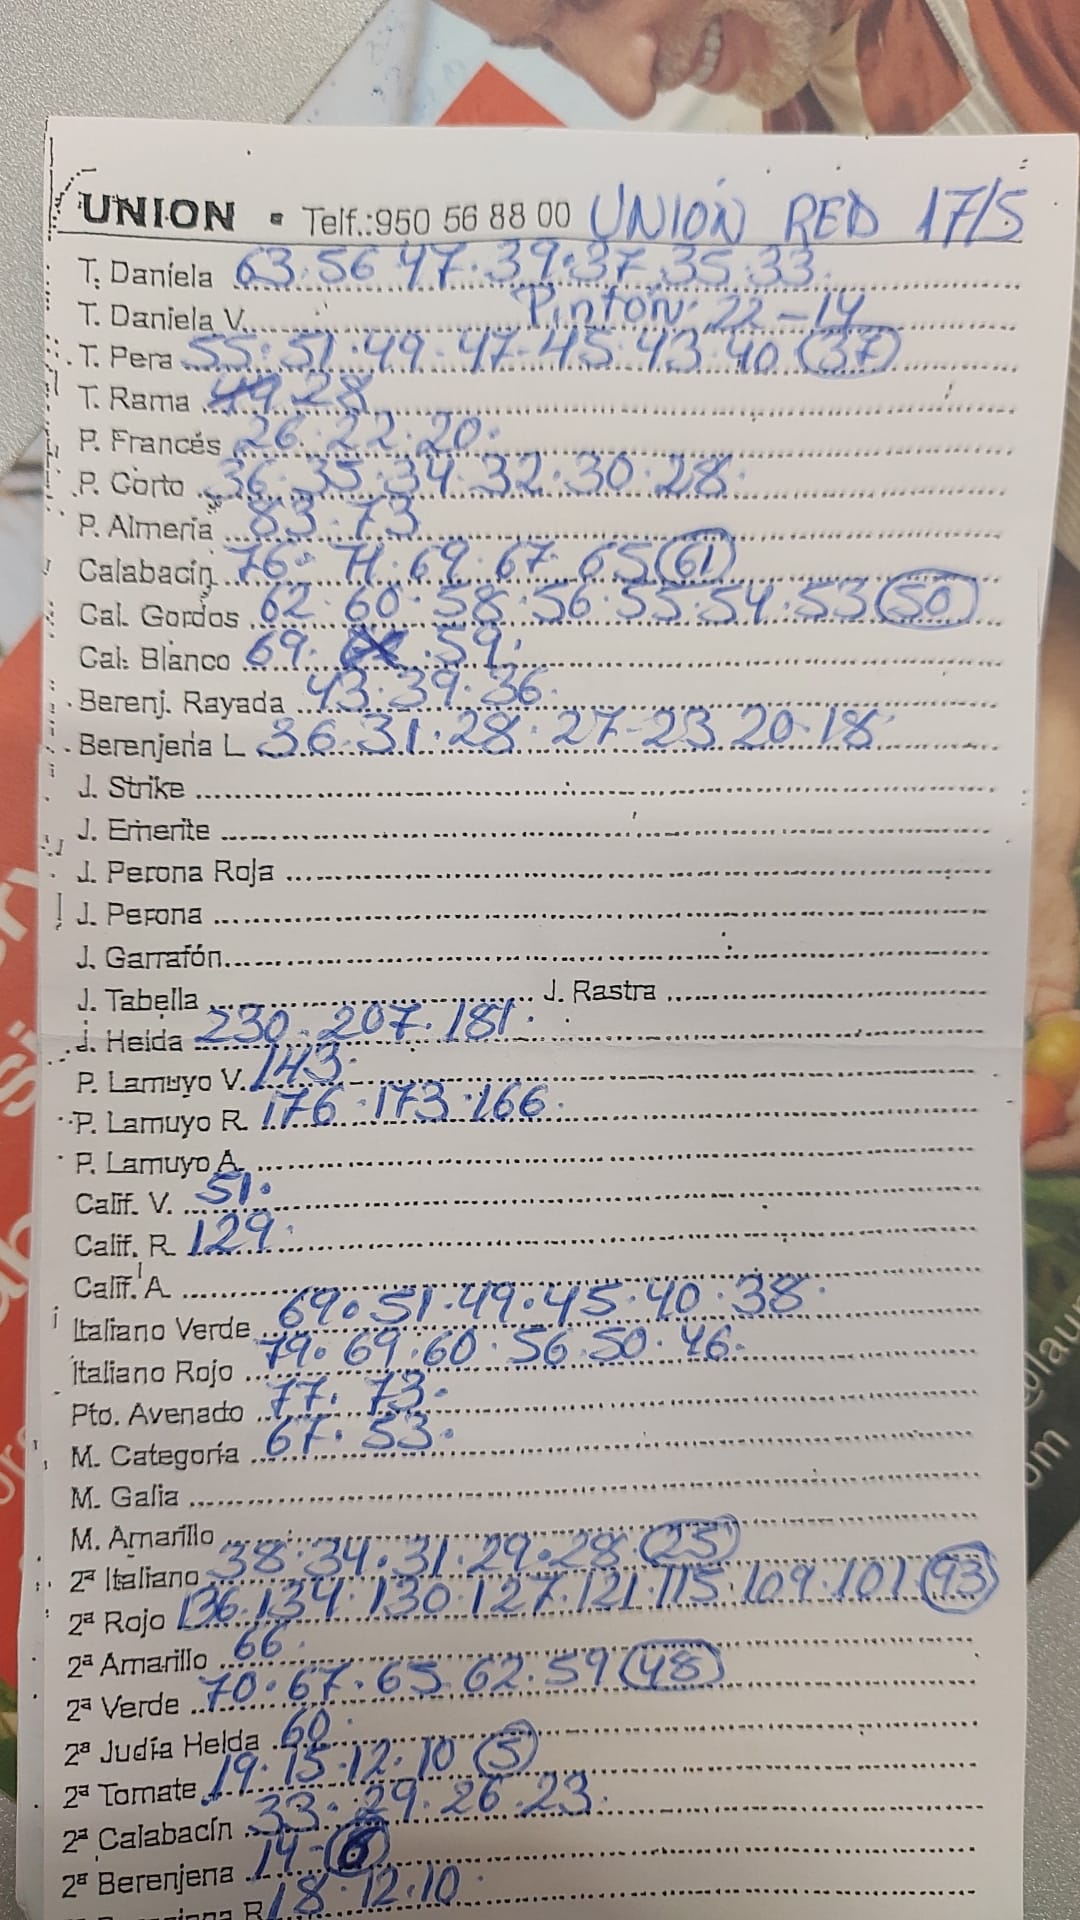 UNION • Telf.:950 56 88 00 UNION RED 17/5
T. Daniela 63.56 47.39.37.35.33.
T. Daniela V. Pintón: 22-14
T. Pera 55.51.49.47-45.43.40 (37)
T. Rama 28
P. Francés 26.22.20.
P. Corto 36.35.34.32.30.28.
P. Almeria 83.73
Calabacín 76. 71.69.67.65 (61)
Cal. Gordos 62.60.58.56.55.54.53 (50)
Cal. Blanco 69. .59.
Berenj. Rayada 43.39.36.
Berenjena L 36.31.28.27-23 20.18
J. Strike
J. Emerite
J. Perona Roja
J. Perona
J. Garrafón
J. Tabella J. Rastra
J. Helda 230.207.181.
P. Lamuyo V. 143.
P. Lamuyo R. 176.173.166.
P. Lamuyo A.
Calif. V. 51.
Calif. R. 129.
Calif. A.
Italiano Verde 69.51.49.45.40.38.
Italiano Rojo 79.69.60.56 50.46.
Pto. Avenado 77. 73.
M. Categoría 67. 53.
M. Galia
M. Amarillo
2ª Italiano 38.34.31.29.28 (25)
2ª Rojo 136.134.130.127.121.115.109.101 (93)
2ª Amarillo 66.
2ª Verde 70.67.65 62.59 (48)
2ª Judía Helda 60.
2ª Tomate 19.15.12.10 (5)
2ª Calabacín 33.29.26.23.
2ª Berenjena 14-(6)
R 18.12.10.